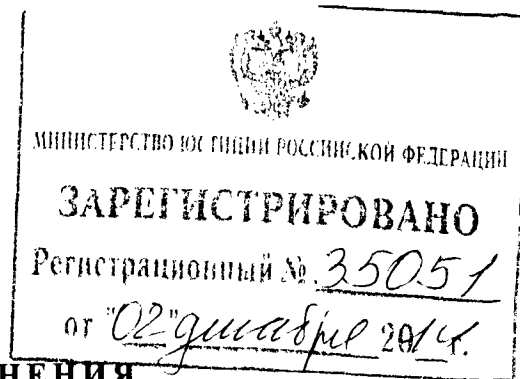 МИНИСТЕРСТВО ЮСТИЦИИ РОССИЙСКОЙ ФЕДЕРАЦИИ
ЗАРЕГИСТРИРОВАНО
Регистрационный № 35051
от "02" декабря 2014 г.
НЕНИЯ